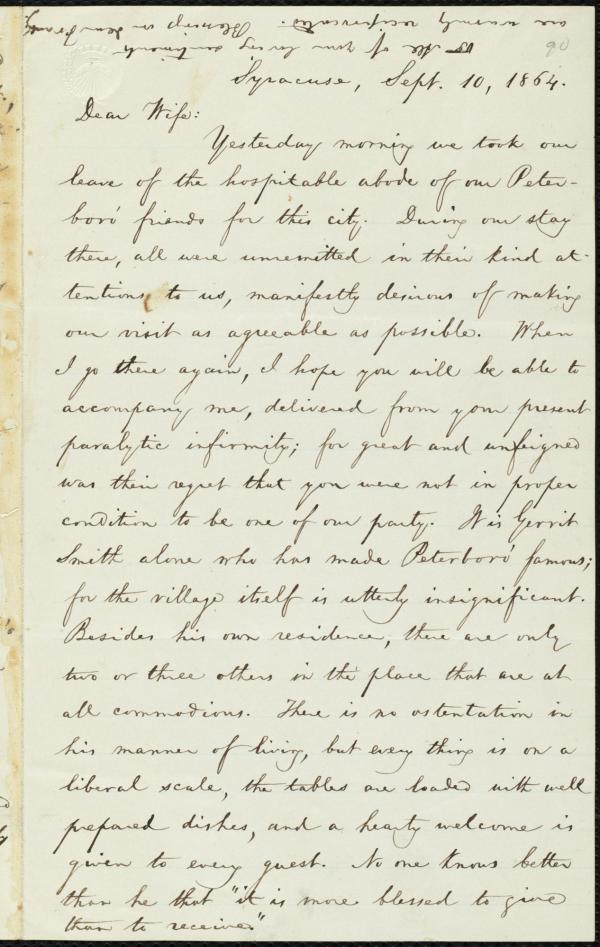 90
Syracuse, Sept. 10, 1864.
Dear Wife:
Yesterday morning we took our
leave of the hospitable abode of our Peter-
boro' friends for this city. During our stay
there, all were unremitted in their kind at-
tentions to us, manifestly desirous of making
our visit as agreeable as possible. When
I go there again, I hope you will be able to
accompany me, delivered from your present
paralytic infirmity; for great and unfeigned
was their regret that you were not in proper
condition to be one of our party. It is Gerrit
Smith alone who has made Peterboro' famous;
for the village itself is utterly insignificant.
Besides his own residence, there are only
two or three others in the place that are at
all commodious. There is no ostentation in
his manner of living, but every thing is on a
liberal scale, the tables are loaded with well
prepared dishes, and a hearty welcome is
given to every guest. No one knows better
than he that "it is more blessed to give
than to receive."